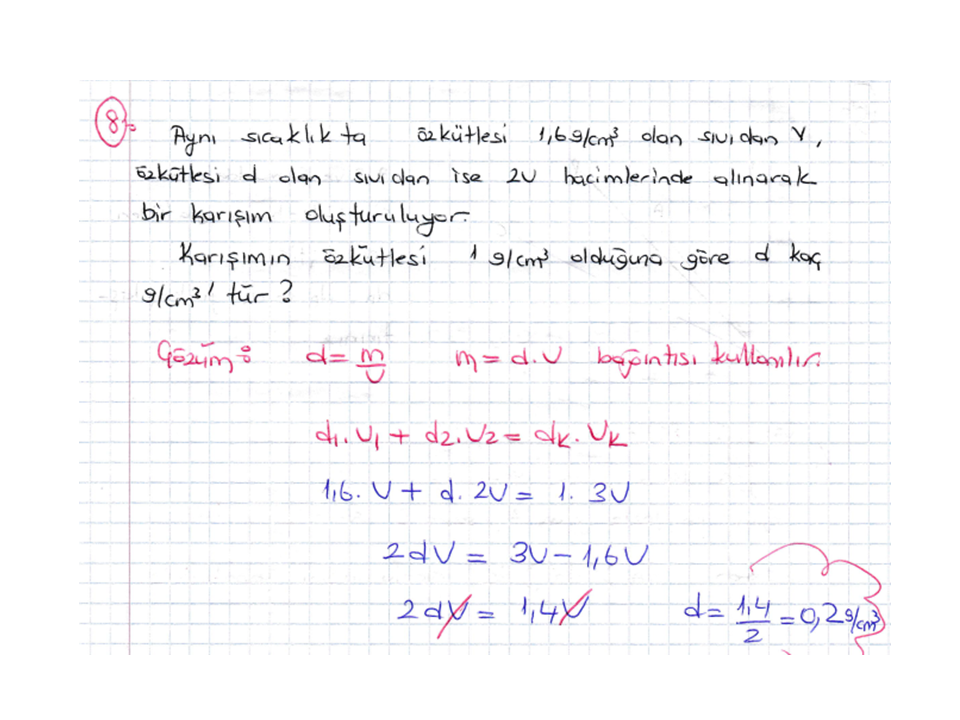 8-
Aynı sıcaklıkta özkütlesi 1,6 g/cm³ olan sıvıdan V,
özkütlesi d olan sıvıdan ise 2V hacimlerinde alınarak
bir karışım oluşturuluyor.
Karışımın özkütlesi 1 g/cm³ olduğuna göre d kaç
g/cm³' tür ?
Çözüm: d = m/V m = d.V bağıntısı kullanılır.
d₁.V₁ + d₂.V₂ = dK.VK
1,6. V + d. 2V = 1. 3V
2dV = 3V - 1,6V
2dV = 1,4V d = 1,4/2 = 0,2 g/cm³